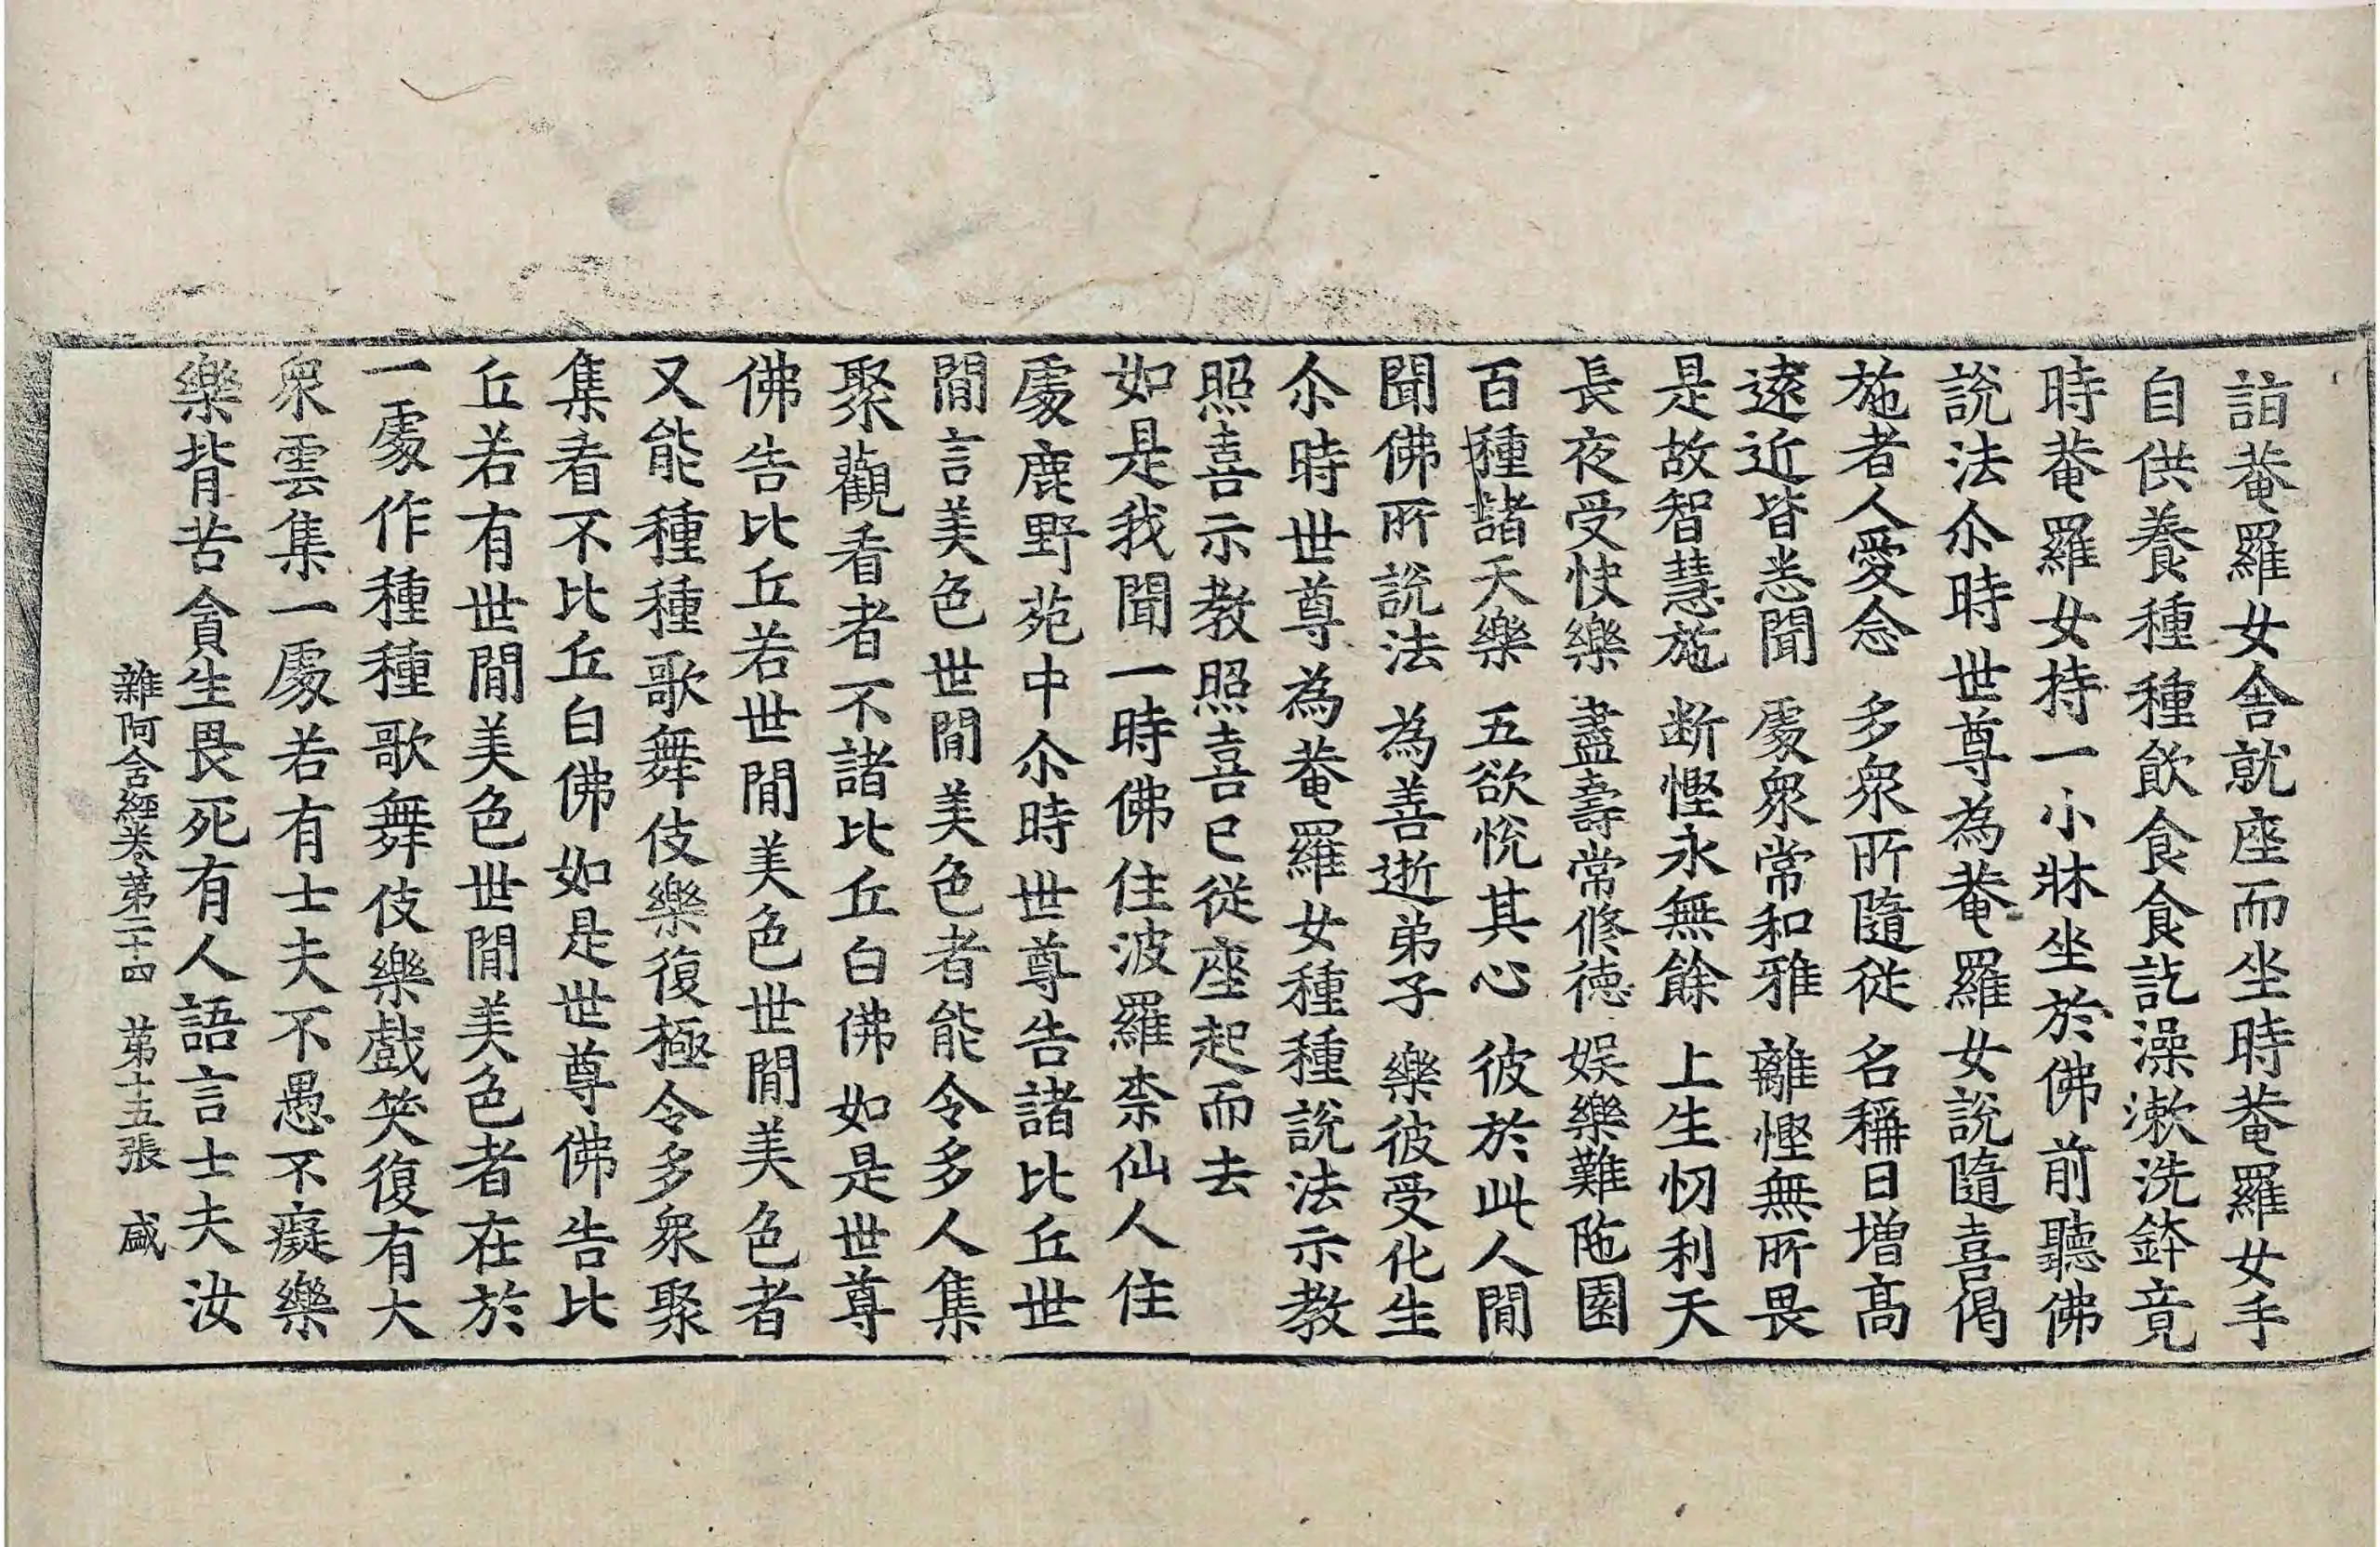 詣菴羅女舍就座而坐時菴羅女手
自供養種種飲食食訖澡漱洗鉢竟
時菴羅女持一小牀坐於佛前聽佛
說法尒時世尊為菴羅女說隨喜偈
施者人愛念 多衆所隨從 名稱日增高
遠近皆悉聞 處衆常和雅 離慳無所畏
是故智慧施 断慳永無餘 上生忉利天
長夜受快樂 盡壽常修德 娛樂難陁園
百種諸天樂 五欲悅其心 彼於此人間
聞佛所說法 為善逝弟子 樂彼受化生
尒時世尊為菴羅女種種說法示教
照喜示教照喜已從座起而去
如是我聞一時佛住波羅柰仙人住
處鹿野苑中尒時世尊告諸比丘世
間言美色世間美色者能令多人集
聚觀看者不諸比丘白佛如是世尊
佛告比丘若世間美色世間美色者
又能種種歌舞伎樂復極令多衆聚
集看不比丘白佛如是世尊佛告比
丘若有世間美色世間美色者在於
一處作種種歌舞伎樂戲笑復有大
衆雲集一處若有士夫不愚不癡樂
樂背苦貪生畏死有人語言士夫汝
雜阿含經卷第二十四 第十五張 咸